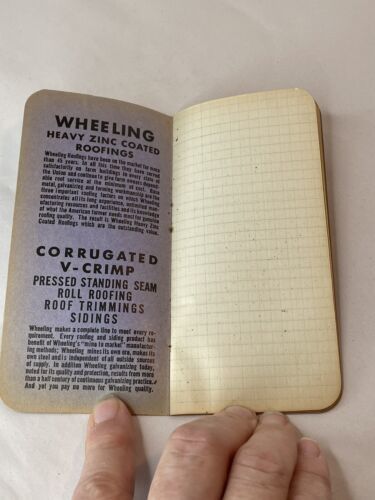 WHEELING
HEAVY ZINC COATED
ROOFINGS
Wheeling Roofings have been on the market for more
than 45 years. In all this time they have served
satisfactorily on farm buildings in every state of
the Union and continue to give farm owners depend-
able roof service at the minimum of cost. Base
metal, galvanizing and forming workmanship are the
three important roofing factors on which Wheeling
concentrates all its long experience, unlimited man-
ufacturing resources and facilities and its knowledge
of what the American farmer needs most for genuine
roofing quality. The result is Wheeling Heavy Zinc
Coated Roofings which are the outstanding value.
CORRUGATED
V-CRIMP
PRESSED STANDING SEAM
ROLL ROOFING
ROOF TRIMMINGS
SIDINGS
Wheeling makes a complete line to meet every re-
quirement. Every roofing and siding product has
benefit of Wheeling's "mine to market" manufactur-
ing methods; Wheeling mines its own ore, makes its
own steel and is independent of all outside sources
of supply. In addition Wheeling galvanizing today,
noted for its quality and protection, results from more
than a half century of continuous galvanizing practice.
And yet you pay no more for Wheeling quality.